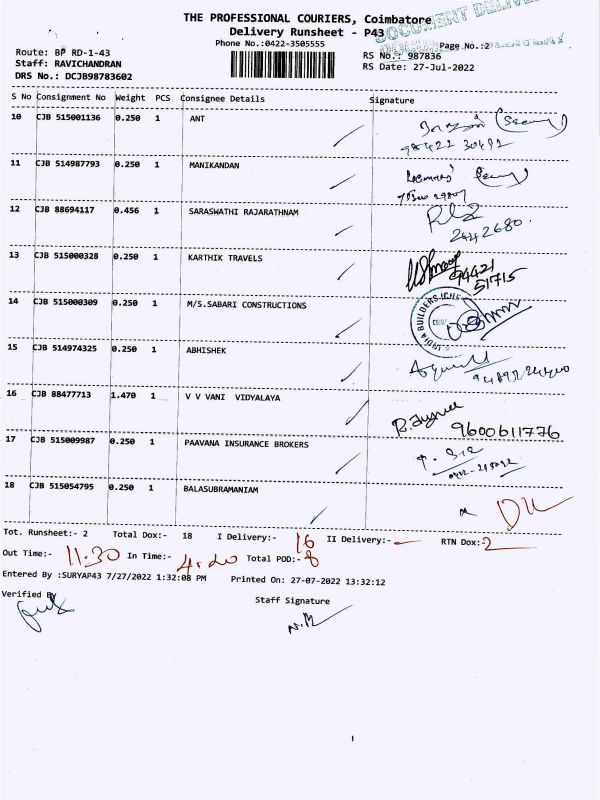 THE PROFESSIONAL COURIERS, Coimbatore
DOCUMENT DELIVE
Delivery Runsheet - P43
Phone No.:0422-3505555
Page No.:2
Route: BP RD-1-43
RS No.: 987836
Staff: RAVICHANDRAN
RS Date: 27-Jul-2022
DRS No.: DCJB98783602
S No Consignment No Weight PCS Consignee Details Signature
10 CJB 515001136 0.250 1 ANT
98422 30492
11 CJB 514987793 0.250 1 MANIKANDAN
12 CJB 88694117 0.456 1 SARASWATHI RAJARATHNAM
2442680.
13 CJB 515000328 0.250 1 KARTHIK TRAVELS
94421
51715
14 CJB 515000309 0.250 1 M/S.SABARI CONSTRUCTIONS
INDIA BUILDERS
15 CJB 514974325 0.250 1 ABHISHEK
16 CJB 88477713 1.470 1 V V VANI VIDYALAYA
9600611776
17 CJB 515009987 0.250 1 PAAVANA INSURANCE BROKERS
18 CJB 515054795 0.250 1 BALASUBRAMANIAM
Tot. Runsheet:- 2 Total Dox:- 18 I Delivery:- 16 II Delivery:- — RTN Dox:- 2
Out Time:- 11.30 In Time:- 4.20 Total POD:- 8
Entered By :SURYAP43 7/27/2022 1:32:08 PM Printed On: 27-07-2022 13:32:12
Verified By
Staff Signature